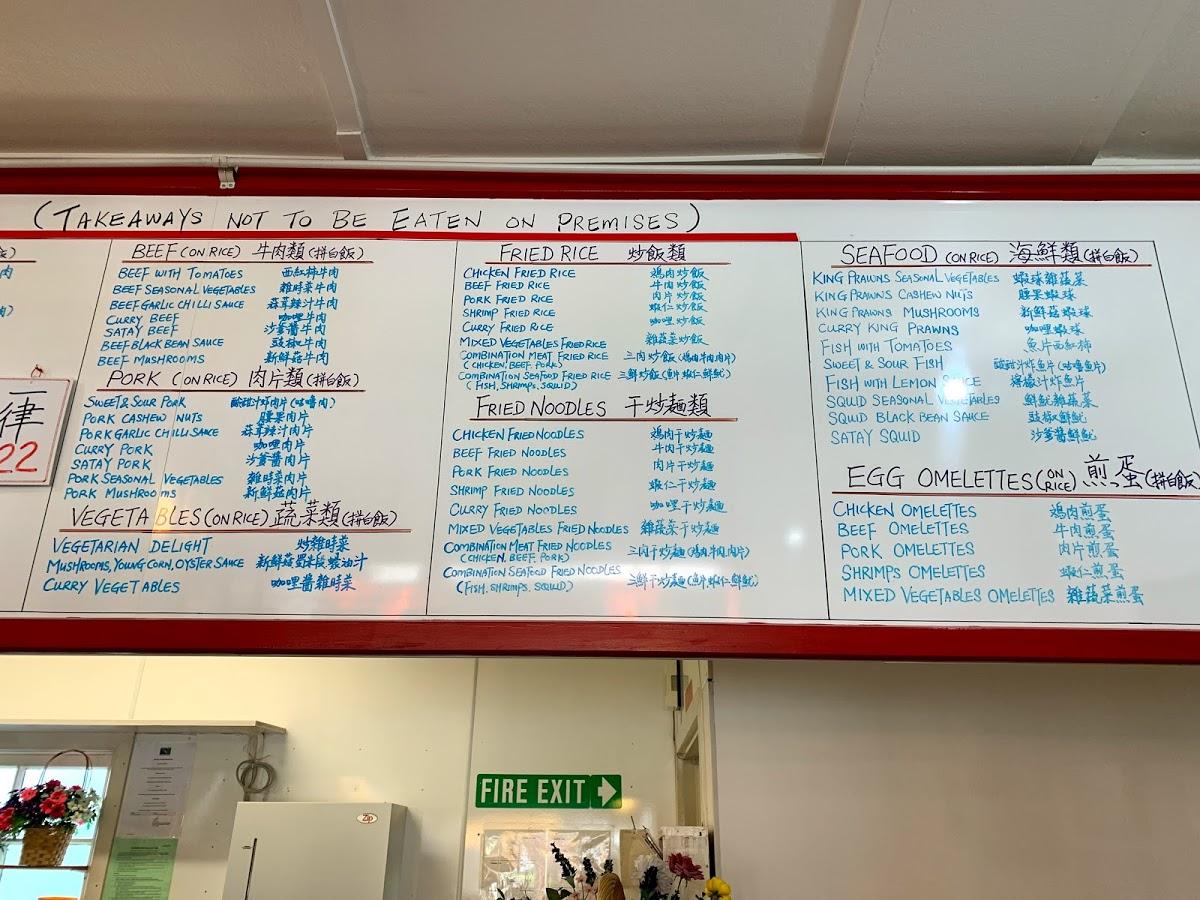 (TAKEAWAYS NOT TO BE EATEN ON PREMISES)
肉
律
22
BEEF (ON RICE) 牛肉類 (拼白飯)
BEEF WITH TOMATOES 西紅柿牛肉
BEEF SEASONAL VEGETABLES 雜時菜牛肉
BEEF GARLIC CHILLI SAUCE 蒜茸辣汁牛肉
CURRY BEEF 咖哩牛肉
SATAY BEEF 沙爹醬牛肉
BEEF BLACK BEAN SAUCE 豉椒牛肉
BEEF MUSHROOMS 新鮮菇牛肉
PORK (ON RICE) 肉片類 (拼白飯)
SWEET & SOUR PORK 酸甜汁炸肉片 (咕嚕肉)
PORK CASHEW NUTS 腰果肉片
PORK GARLIC CHILLI SAUCE 蒜茸辣汁肉片
CURRY PORK 咖哩肉片
SATAY PORK 沙爹醬肉片
PORK SEASONAL VEGETABLES 雜時菜肉片
PORK MUSHROOMS 新鮮菇肉片
VEGETABLES (ON RICE) 蔬菜類 (拼白飯)
VEGETARIAN DELIGHT 炒雜時菜
MUSHROOMS, YOUNG CORN, OYSTER SAUCE 新鮮菇粟米段蠔油汁
CURRY VEGETABLES 咖哩醬雜時菜
FRIED RICE 炒飯類
CHICKEN FRIED RICE 鷄肉炒飯
BEEF FRIED RICE 牛肉炒飯
PORK FRIED RICE 肉片炒飯
SHRIMP FRIED RICE 蝦仁炒飯
CURRY FRIED RICE 咖哩炒飯
MIXED VEGETABLES FRIED RICE 雜蔬菜炒飯
COMBINATION MEAT FRIED RICE 三肉炒飯 (鷄肉牛肉肉片)
(CHICKEN, BEEF, PORK)
COMBINATION SEAFOOD FRIED RICE 三鮮炒飯 (魚片蝦仁鮮魷)
(FISH, SHRIMPS, SQUID)
FRIED NOODLES 干炒麵類
CHICKEN FRIED NOODLES 鷄肉干炒麵
BEEF FRIED NOODLES 牛肉干炒麵
PORK FRIED NOODLES 肉片干炒麵
SHRIMP FRIED NOODLES 蝦仁干炒麵
CURRY FRIED NOODLES 咖哩干炒麵
MIXED VEGETABLES FRIED NOODLES 雜蔬菜干炒麵
COMBINATION MEAT FRIED NOODLES 三肉干炒麵 (鷄肉牛肉肉片)
(CHICKEN, BEEF, PORK)
COMBINATION SEAFOOD FRIED NOODLES 三鮮干炒麵 (魚片蝦仁鮮魷)
(FISH, SHRIMPS, SQUID)
SEAFOOD (ON RICE) 海鮮類 (拼白飯)
KING PRAWNS SEASONAL VEGETABLES 蝦球雜蔬菜
KING PRAWNS CASHEW NUTS 腰果蝦球
KING PRAWNS MUSHROOMS 新鮮菇蝦球
CURRY KING PRAWNS 咖哩蝦球
FISH WITH TOMATOES 魚片西紅柿
SWEET & SOUR FISH 酸甜汁炸魚片 (咕嚕魚片)
FISH WITH LEMON SAUCE 檸檬汁炸魚片
SQUID SEASONAL VEGETABLES 鮮魷雜蔬菜
SQUID BLACK BEAN SAUCE 豉椒鮮魷
SATAY SQUID 沙爹醬鮮魷
EGG OMELETTES (ON RICE) 煎蛋 (拼白飯)
CHICKEN OMELETTES 鷄肉煎蛋
BEEF OMELETTES 牛肉煎蛋
PORK OMELETTES 肉片煎蛋
SHRIMPS OMELETTES 蝦仁煎蛋
MIXED VEGETABLES OMELETTES 雜蔬菜煎蛋
FIRE EXIT
Zip